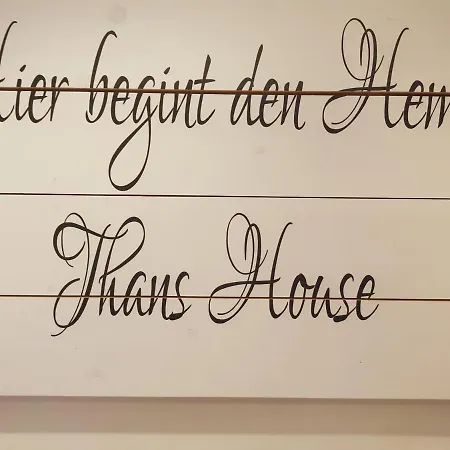 Hier begint den Hem
Thans House